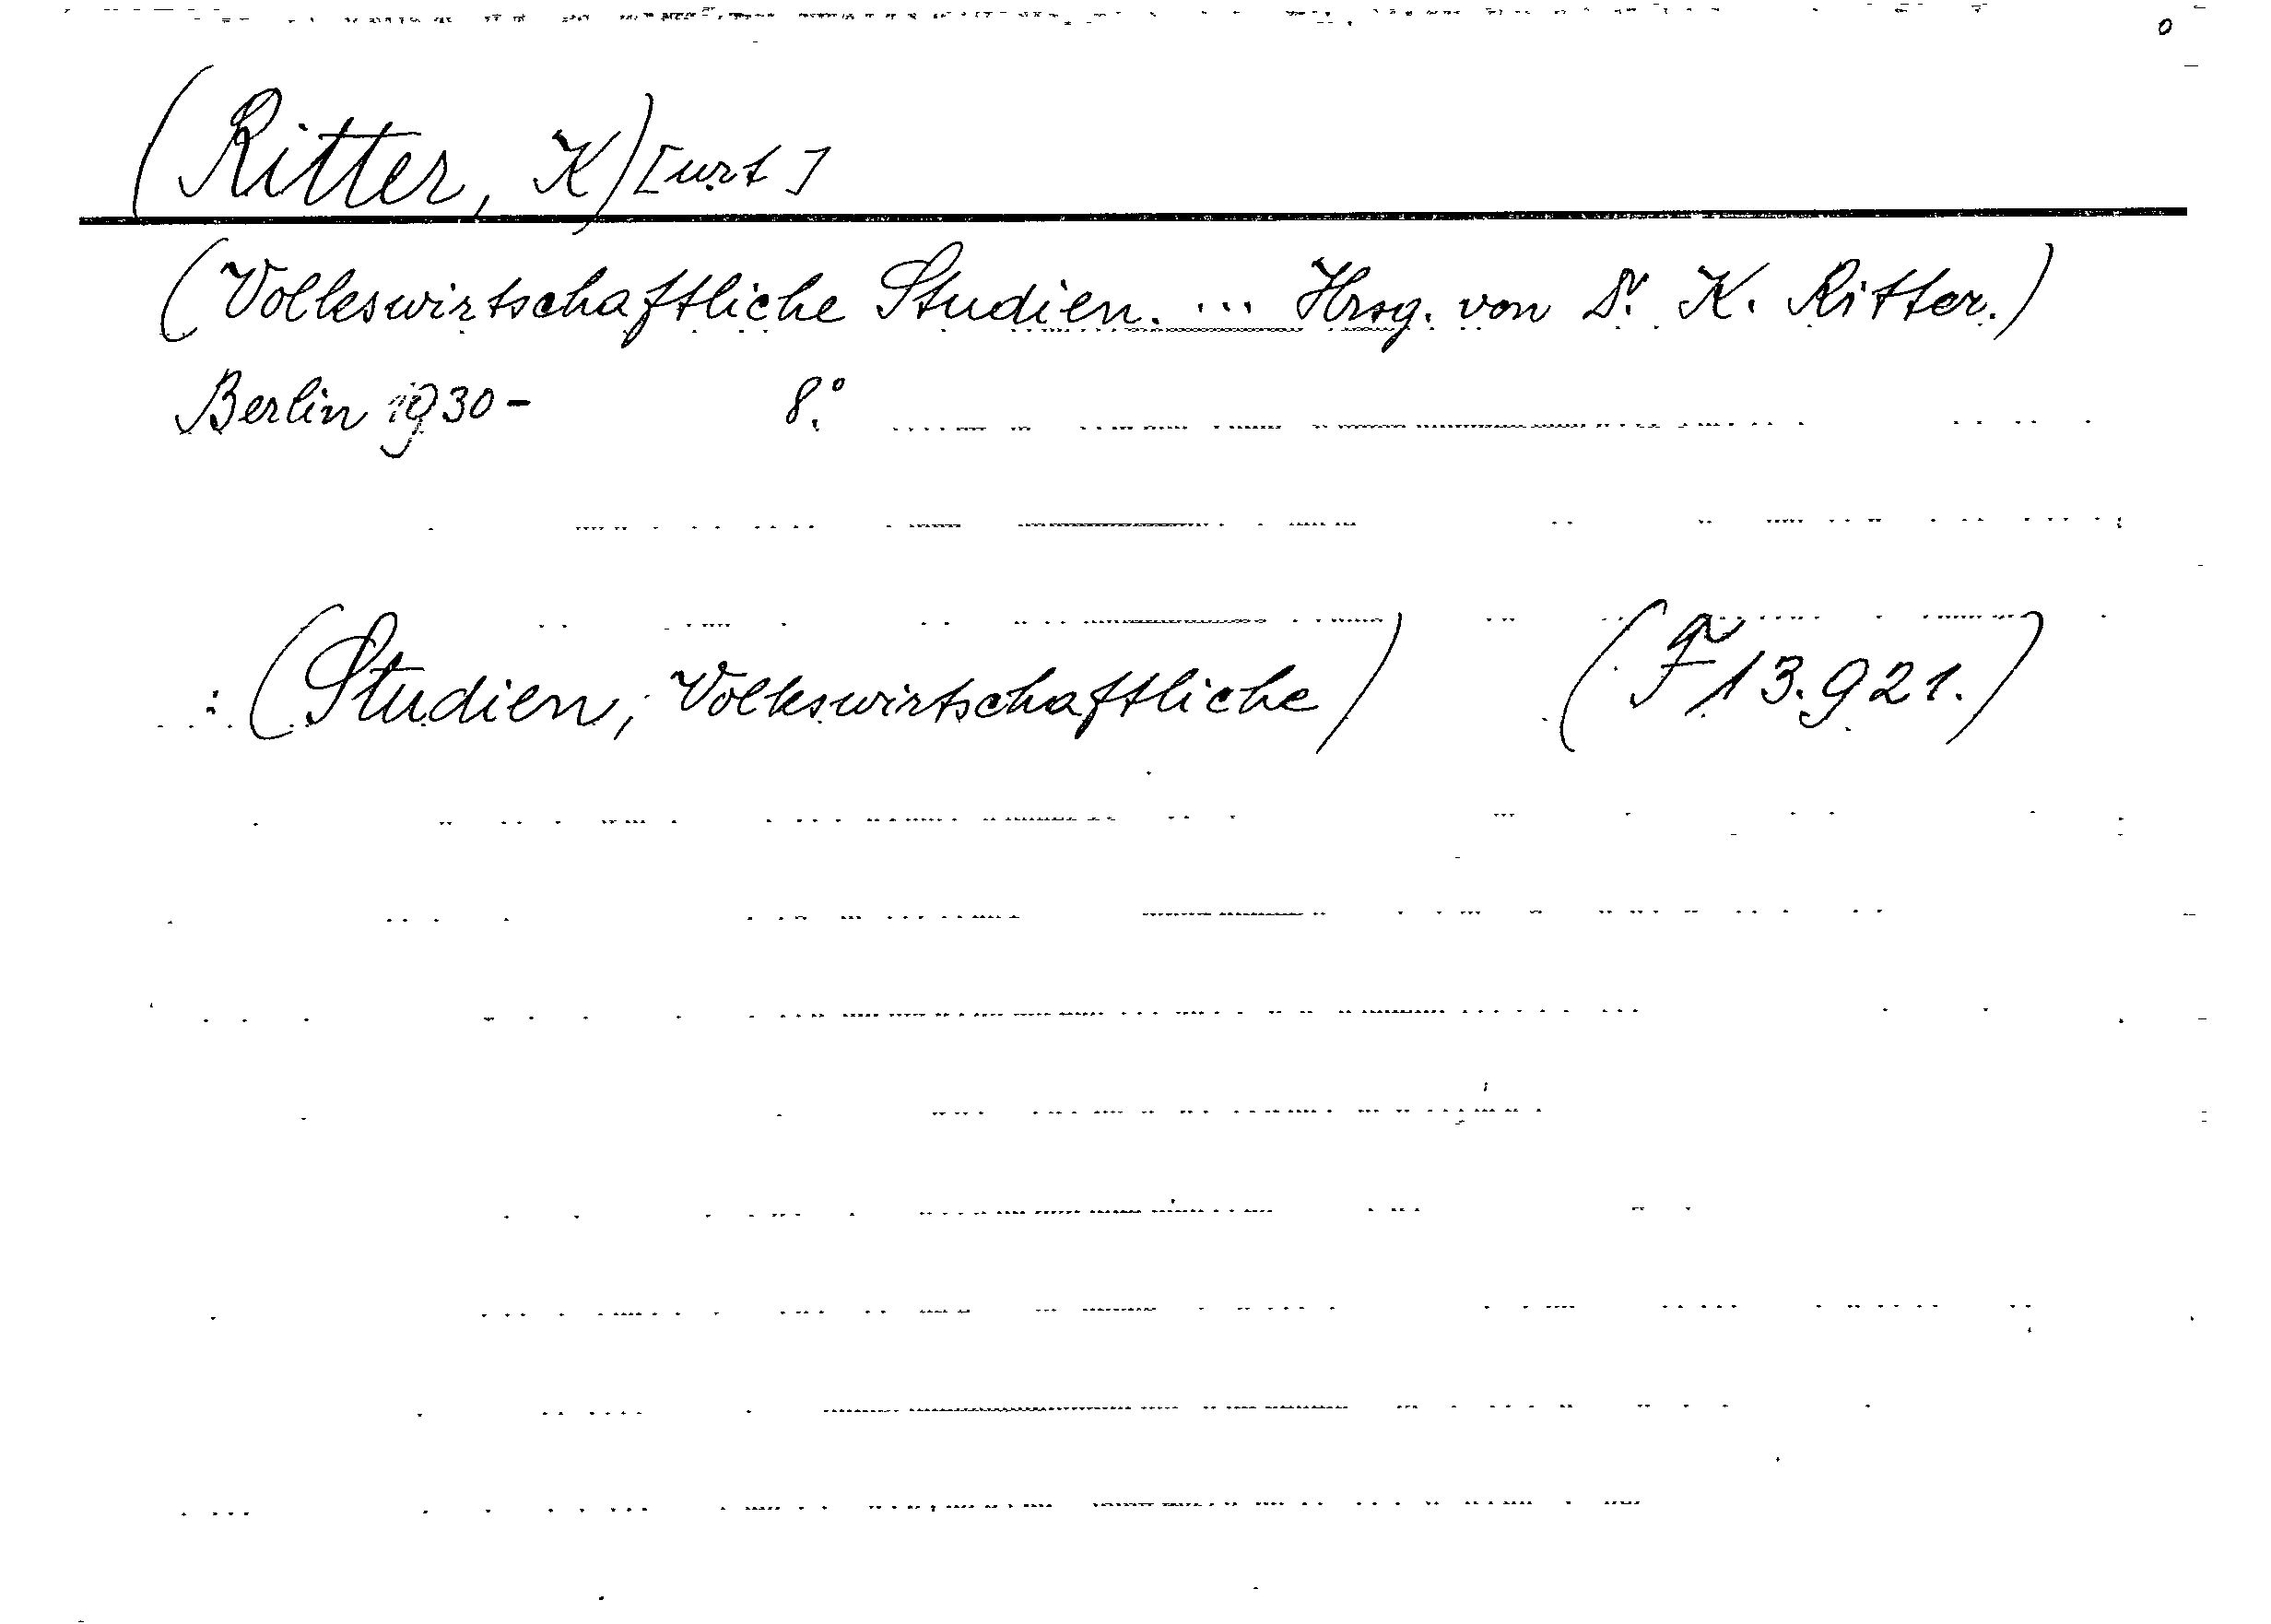 (Ritter, K)[urt]
(Volkswirtschaftliche Studien. ... Hrsg. von Dr. K. Ritter.)
Berlin 1930- 8.°
: (Studien, Volkswirtschaftliche) (F 13.921.)